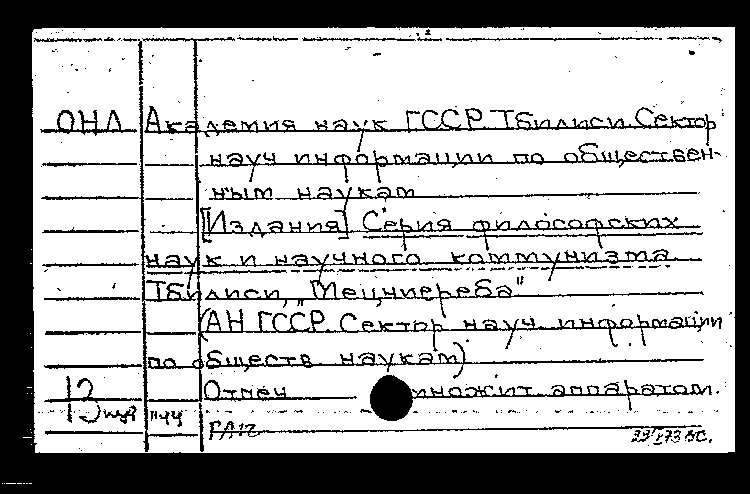 ОНЛ Академия наук ГССР. Тбилиси. Сектор
науч информации по обществен-
ным наукам
[Издания] Серия философских
наук и научного коммунизма
Тбилиси, "Мецниереба"
(АН ГССР. Сектор науч. информации
по обществ наукам)
Отпеч множит. аппаратом.
13